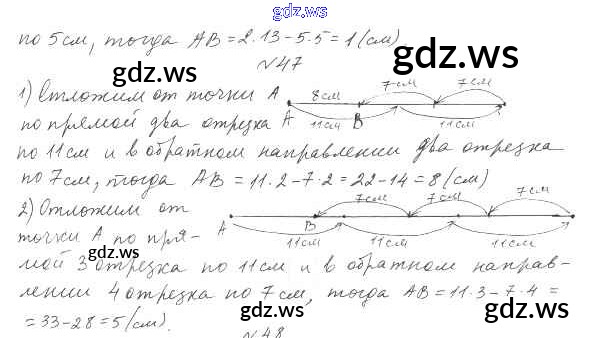 gdz.ws
по 5см, тогда AB = 2·13 - 5·5 = 1 (см)
№47
gdz.ws
gdz.ws
1) Отложим от точки A
8см 7см 7см
A B
11см 11см
по прямой два отрезка
по 11см и в обратном направлении два отрезка
по 7см, тогда AB = 11·2 - 7·2 = 22 - 14 = 8 (см)
gdz.ws
gdz.ws
2) Отложим от
7см 7см 7см 7см
A B
11см 11см 11см
точки A по пря-
gdz.ws
gdz.ws
мой 3 отрезка по 11см и в обратном направ-
лении 4 отрезка по 7см, тогда AB = 11·3 - 7·4 =
= 33 - 28 = 5 (см).
gdz.ws
gdz.ws
№48
gdz.ws